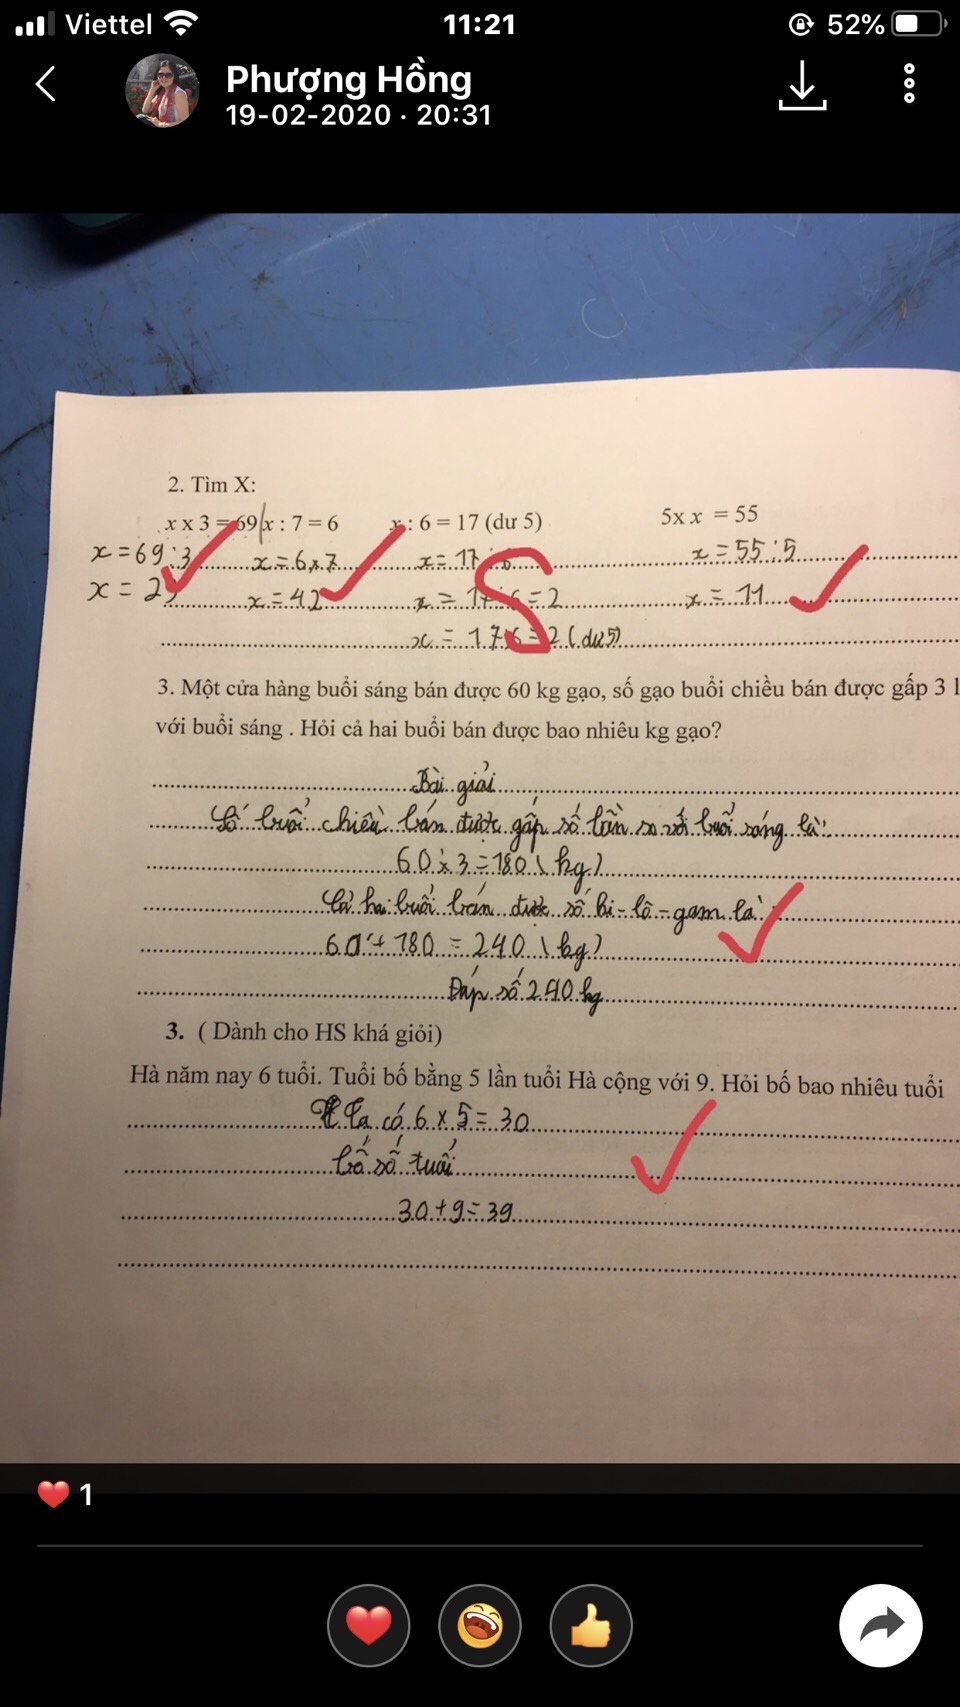 Viettel 11:21 52%
Phượng Hồng
19-02-2020 · 20:31
2. Tìm X:
x x 3 = 69 x : 7 = 6 x : 6 = 17 (dư 5) 5x x = 55
x = 69 : 3 x = 6 x 7 x = 17 : 6 x = 55 : 5
x = 2 x = 42 x = 17 : 6 = 2 x = 11
x = 17 : 6 = 2 (dư 5)
3. Một cửa hàng buổi sáng bán được 60 kg gạo, số gạo buổi chiều bán được gấp 3 l
với buổi sáng . Hỏi cả hai buổi bán được bao nhiêu kg gạo?
Bài giải
Số buổi chiều bán được gấp số lần so với buổi sáng là:
60 x 3 = 180 (kg)
Cả hai buổi bán được số ki-lô-gam là:
60 + 180 = 240 (kg)
Đáp số 240 kg
3. ( Dành cho HS khá giỏi)
Hà năm nay 6 tuổi. Tuổi bố bằng 5 lần tuổi Hà cộng với 9. Hỏi bố bao nhiêu tuổi
Ta có 6 x 5 = 30
bố số tuổi
30 + 9 = 39
S
1